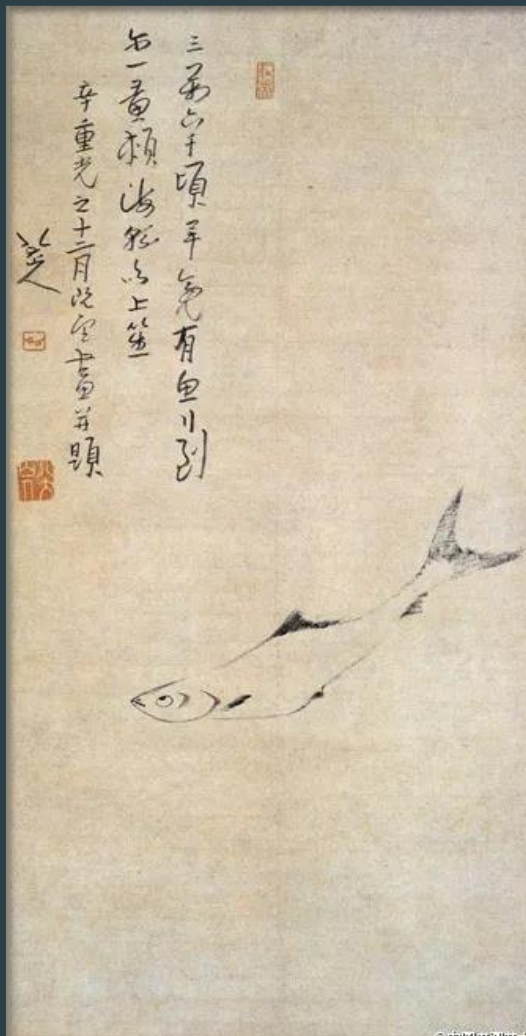 三萬六千頃畢竟有魚行到
尔一黄頰海綿吹上笙
辛重光之十二月既望畫并題
八大山人